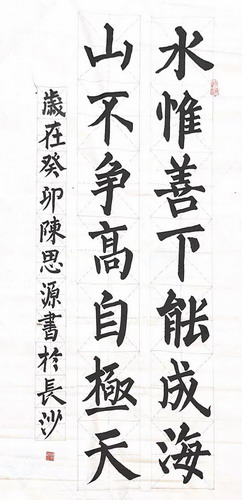 水惟善下能成海
山不争高自極天
歲在癸卯陳思源書於長沙